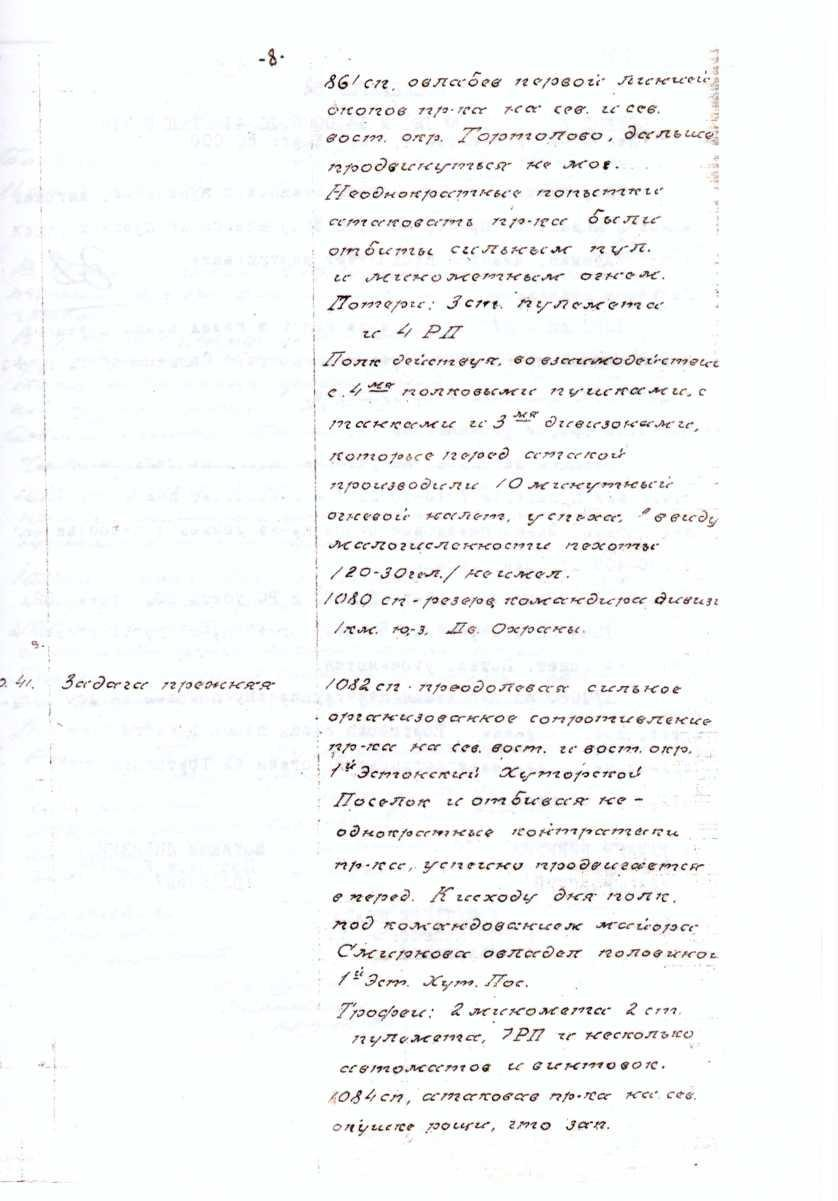 -8-
861 сп, овладев первой линией
окопов пр-ка на сев. и сев.
вост. окр. Тортолово, дальше
продвинуться не мог.
Неоднократные попытки
атаковать пр-ка были
отбиты сильным пул.
и минометным огнем.
Потери: 3 ст. пулемета
и 4 РП
Полк действуя, во взаимодействии
с 4мя полковыми пушками, с
танками и 3мя дивизионами,
которые перед атакой
производили 10 минутный
огневой налет, успеха, ввиду
малочисленности пехоты
/20-30 чел./ не имел.
1080 сп - резерв командира дивиз
1 км. ю-з. Дв. Охраны.
9.
0. 41. Задача прежняя
1082 сп - преодолевая сильное
организованное сопротивление
пр-ка на сев. вост. и вост. окр.
1й Эстонский Хуторской
Поселок и отбивая не-
однократные контратаки
пр-ка, успешно продвигается
вперед. К исходу дня полк,
под командованием майора
Смирнова овладел половиной
1й Эст. Хут. Пос.
Трофеи: 2 миномета 2 ст.
пулемета, 7РП и несколько
автоматов и винтовок.
1084 сп, атаковав пр-ка на сев.
опушке рощи, что зап.